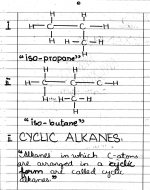 I
H H
H—C—C—H
H H—C—H
H
"iso-propane"
ii
H H H
H—C—C—C—H
H H
H—C—H
H
"iso-butane"
ii CYCLIC ALKANES:
"Alkanes in which C-atoms
are arranged in a cyclic
form are called cyclic
alkanes."